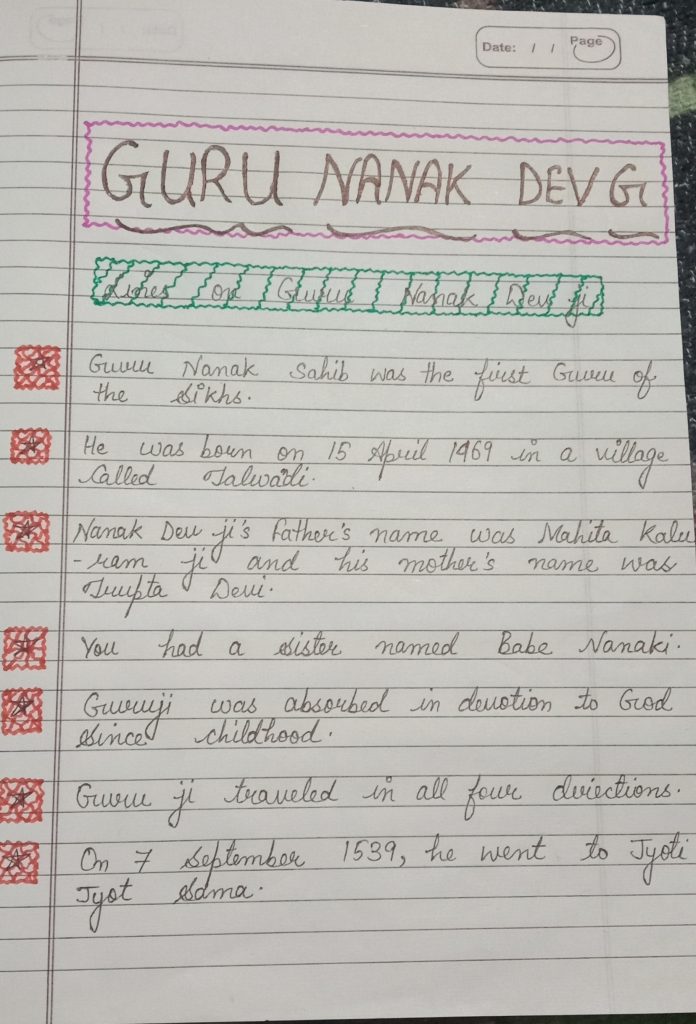 Date: / / Page
GURU NANAK DEV G
Lines on Guru Nanak Dev ji
Guru Nanak Sahib was the first Guru of
the Sikhs.
He was born on 15 April 1469 in a village
Called Talwadi.
Nanak Dev ji's father's name was Mahita Kalu
-ram ji and his mother's name was
Trupta Devi.
You had a sister named Babe Nanaki.
Guruji was absorbed in devotion to God
Since childhood.
Guru ji traveled in all four directions.
On 7 September 1539, he went to Jyoti
Jyot Sama.